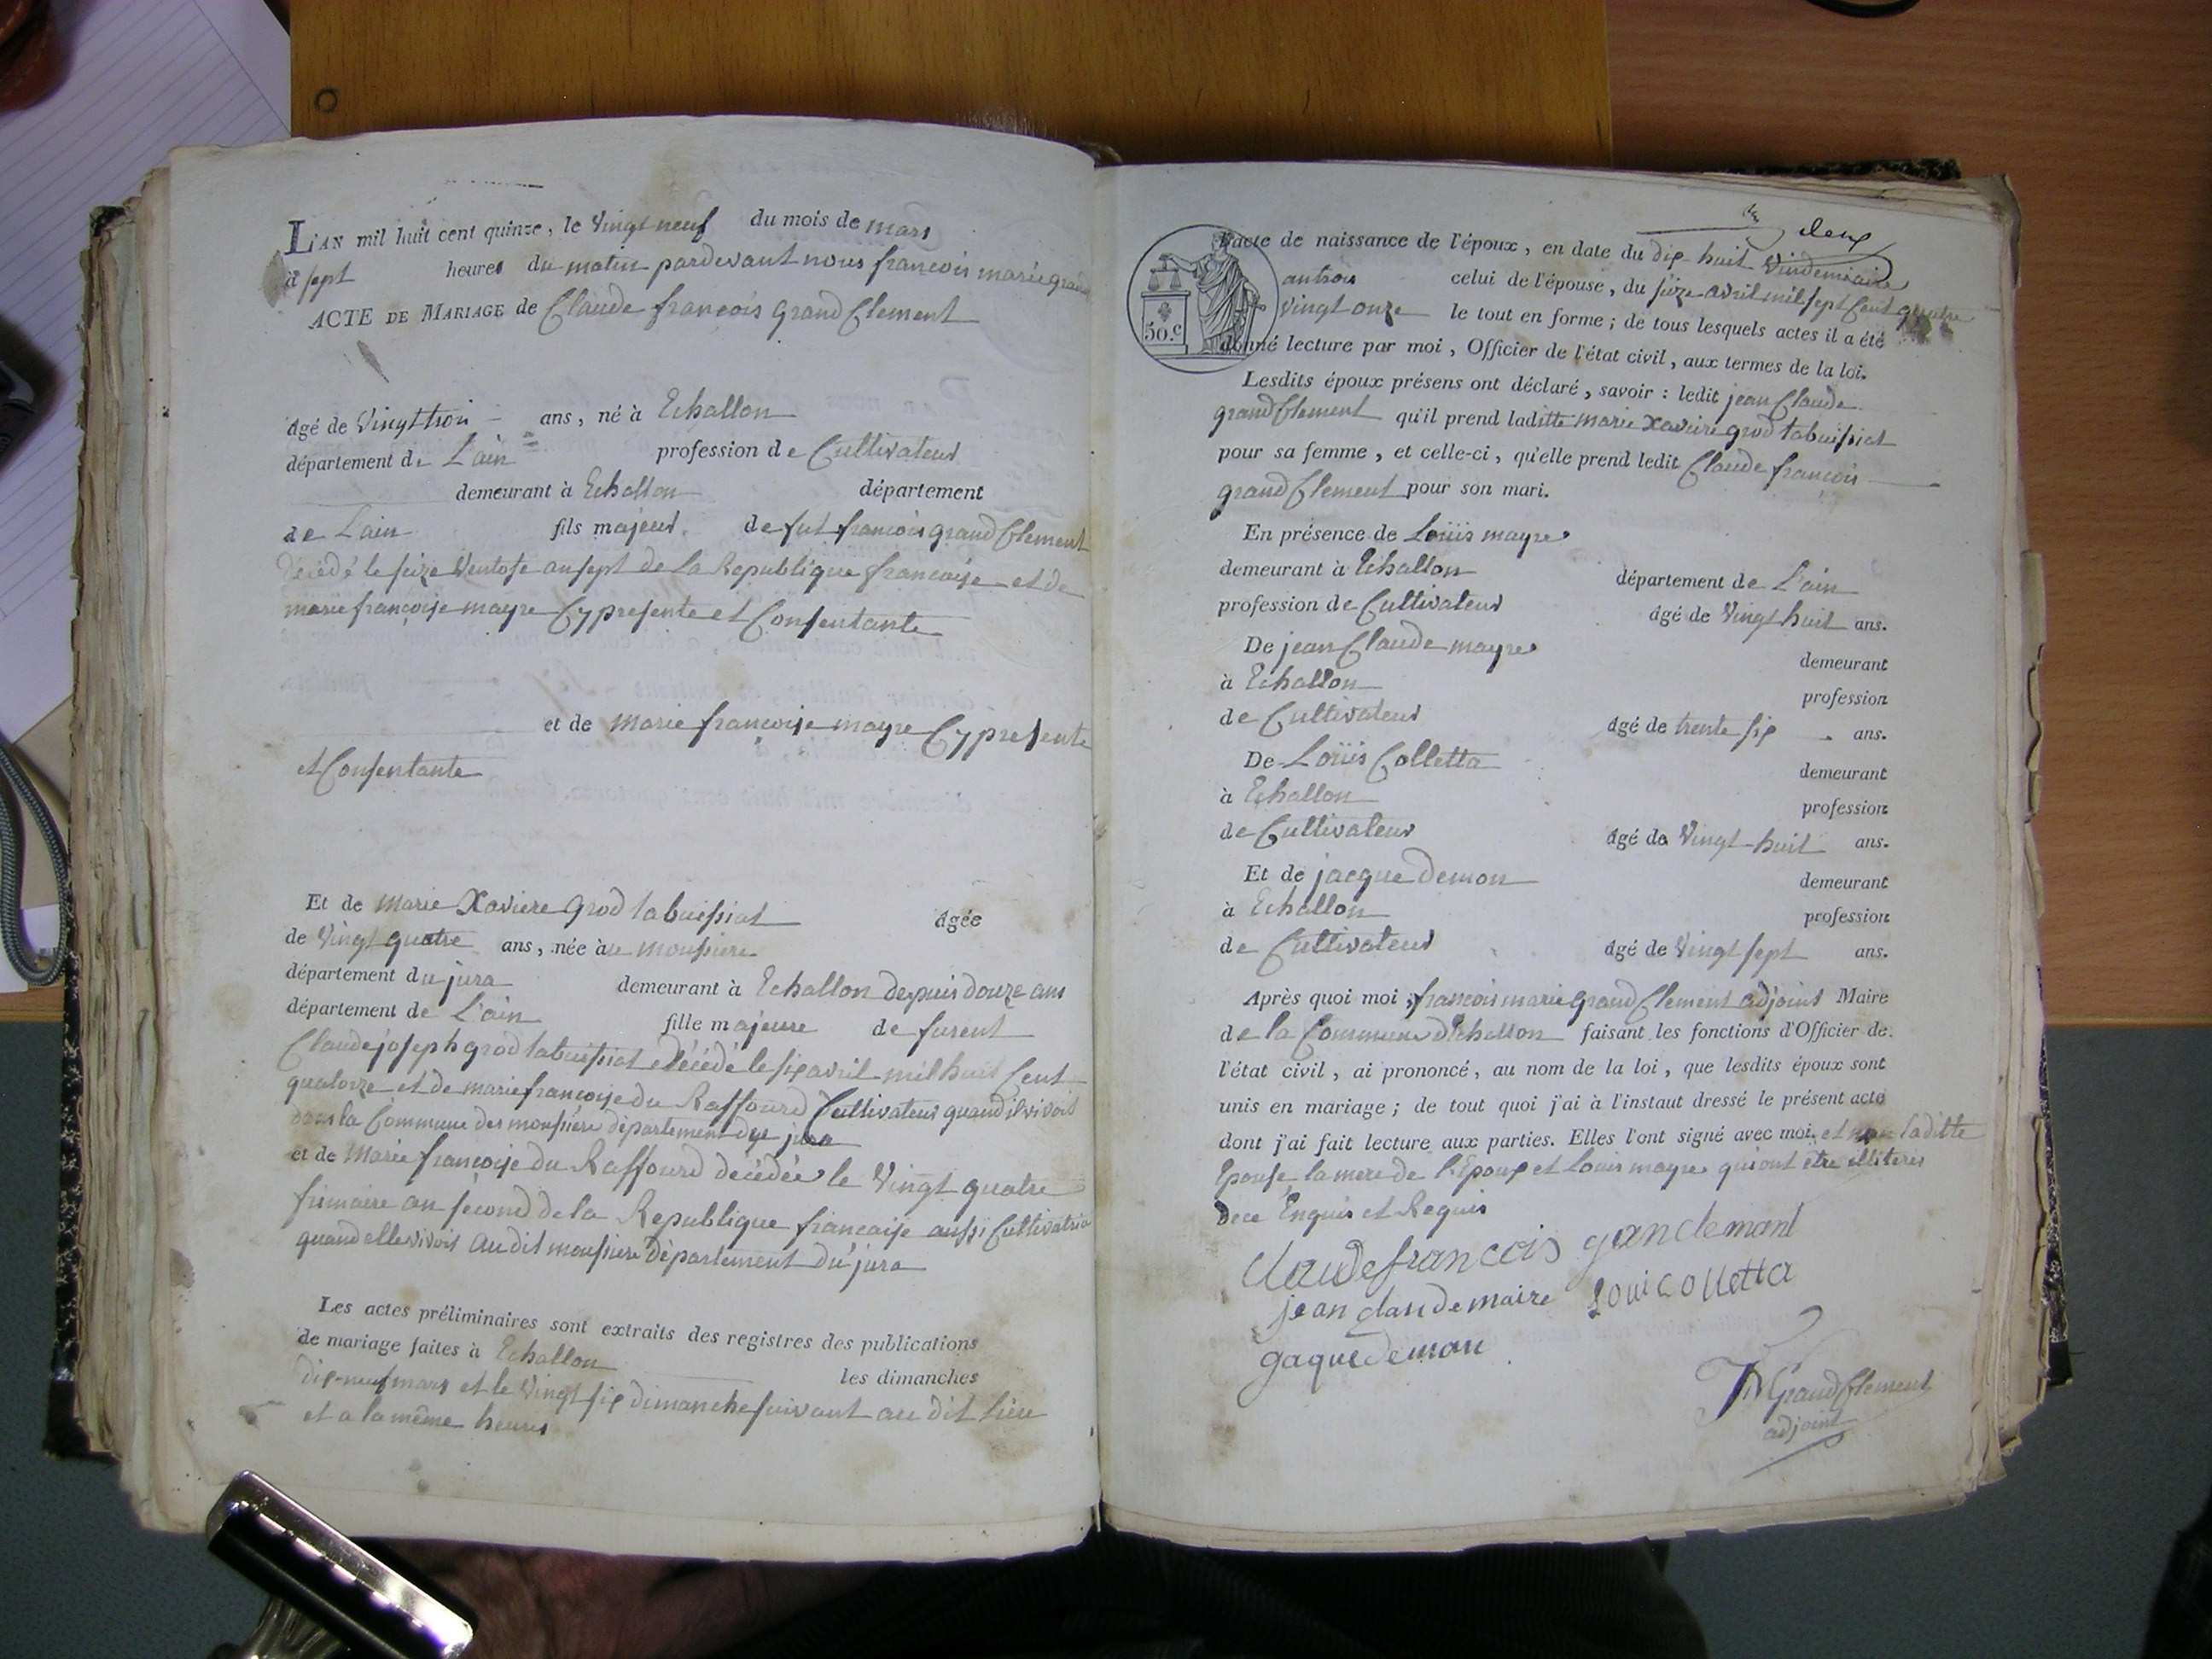 L'AN mil huit cent quinze, le Vingt neuf du mois de mars
à sept heures du matin pardevant nous francois marie grand
ACTE DE MARIAGE de Claude françois grand Clement
âgé de Vingt troi ans, né à Echallon
département de L'ain profession de Cultivateur
demeurant à Echallon département
de L'ain fils majeur de fut francois grand Clement
décédé le seize Ventose an sept de la Republique francaise et de
marie françoise mayre Cy presente et Consentante
et de marie françoise mayre Cy presente
et Consentante
Et de Marie Xaviere grod tabuissiat âgée
de Vingt quatre ans, née à au moussiere
département du jura demeurant à Echallon depuis douze ans
département de L'ain fille majeure de furent
Claude joseph grod tabuissiat décédé le six avril mil huit Cent
quatorze et de marie françoise du Raffourd Cultivateur quand il vivoit
dans la Commune des moussiere département du jura
et de Marie françoise du Raffourd décédée le Vingt quatre
frimaire an second de la Republique francaise aussi Cultivatrice
quand elle vivoit au dit moussiere département du jura
Les actes préliminaires sont extraits des registres des publications
de mariage faites à Echallon les dimanches
dix-neuf mars et le Vingt six dimanche suivant au dit lieu
et a la même heures
deux
l'acte de naissance de l'époux, en date du dix huit Vindemiaire
an trois celui de l'épouse, du seize avril mil sept Cent quatre
vingt onze le tout en forme; de tous lesquels actes il a été
donné lecture par moi, Officier de l'état civil, aux termes de la loi.
Lesdits époux présens ont déclaré, savoir: ledit jean Claude
grand Clement qu'il prend laditte marie Xaviere grod tabuissiat
pour sa femme, et celle-ci, qu'elle prend ledit Claude françois
grand Clement pour son mari.
En présence de Loüis mayre
demeurant à Echallon département de L'ain
profession de Cultivateur âgé de Vingt huit ans.
De jean Claude mayre demeurant
à Echallon profession
de Cultivateur âgé de trente six ans.
De Loüis Colletta demeurant
à Echallon profession
de Cultivateur âgé de Vingt-huit ans.
Et de jacque Demon demeurant
à Echallon profession
de Cultivateur âgé de Vingt sept ans.
Après quoi moi, francois marie grand Clement adjoint Maire
de la Commune d'Echallon faisant les fonctions d'Officier de
l'état civil, ai prononcé, au nom de la loi, que lesdits époux sont
unis en mariage; de tout quoi j'ai à l'instaut dressé le présent acte
dont j'ai fait lecture aux parties. Elles l'ont signé avec moi, et non laditte
Epouse la mere de l'Epoux et Louis mayre qui ont être illiteres
de ce Enquis et Requis
Claude francois granclemant
jean claude maire Loui colletta
gaque demon
FM Grand Clement
adjoint
50.c